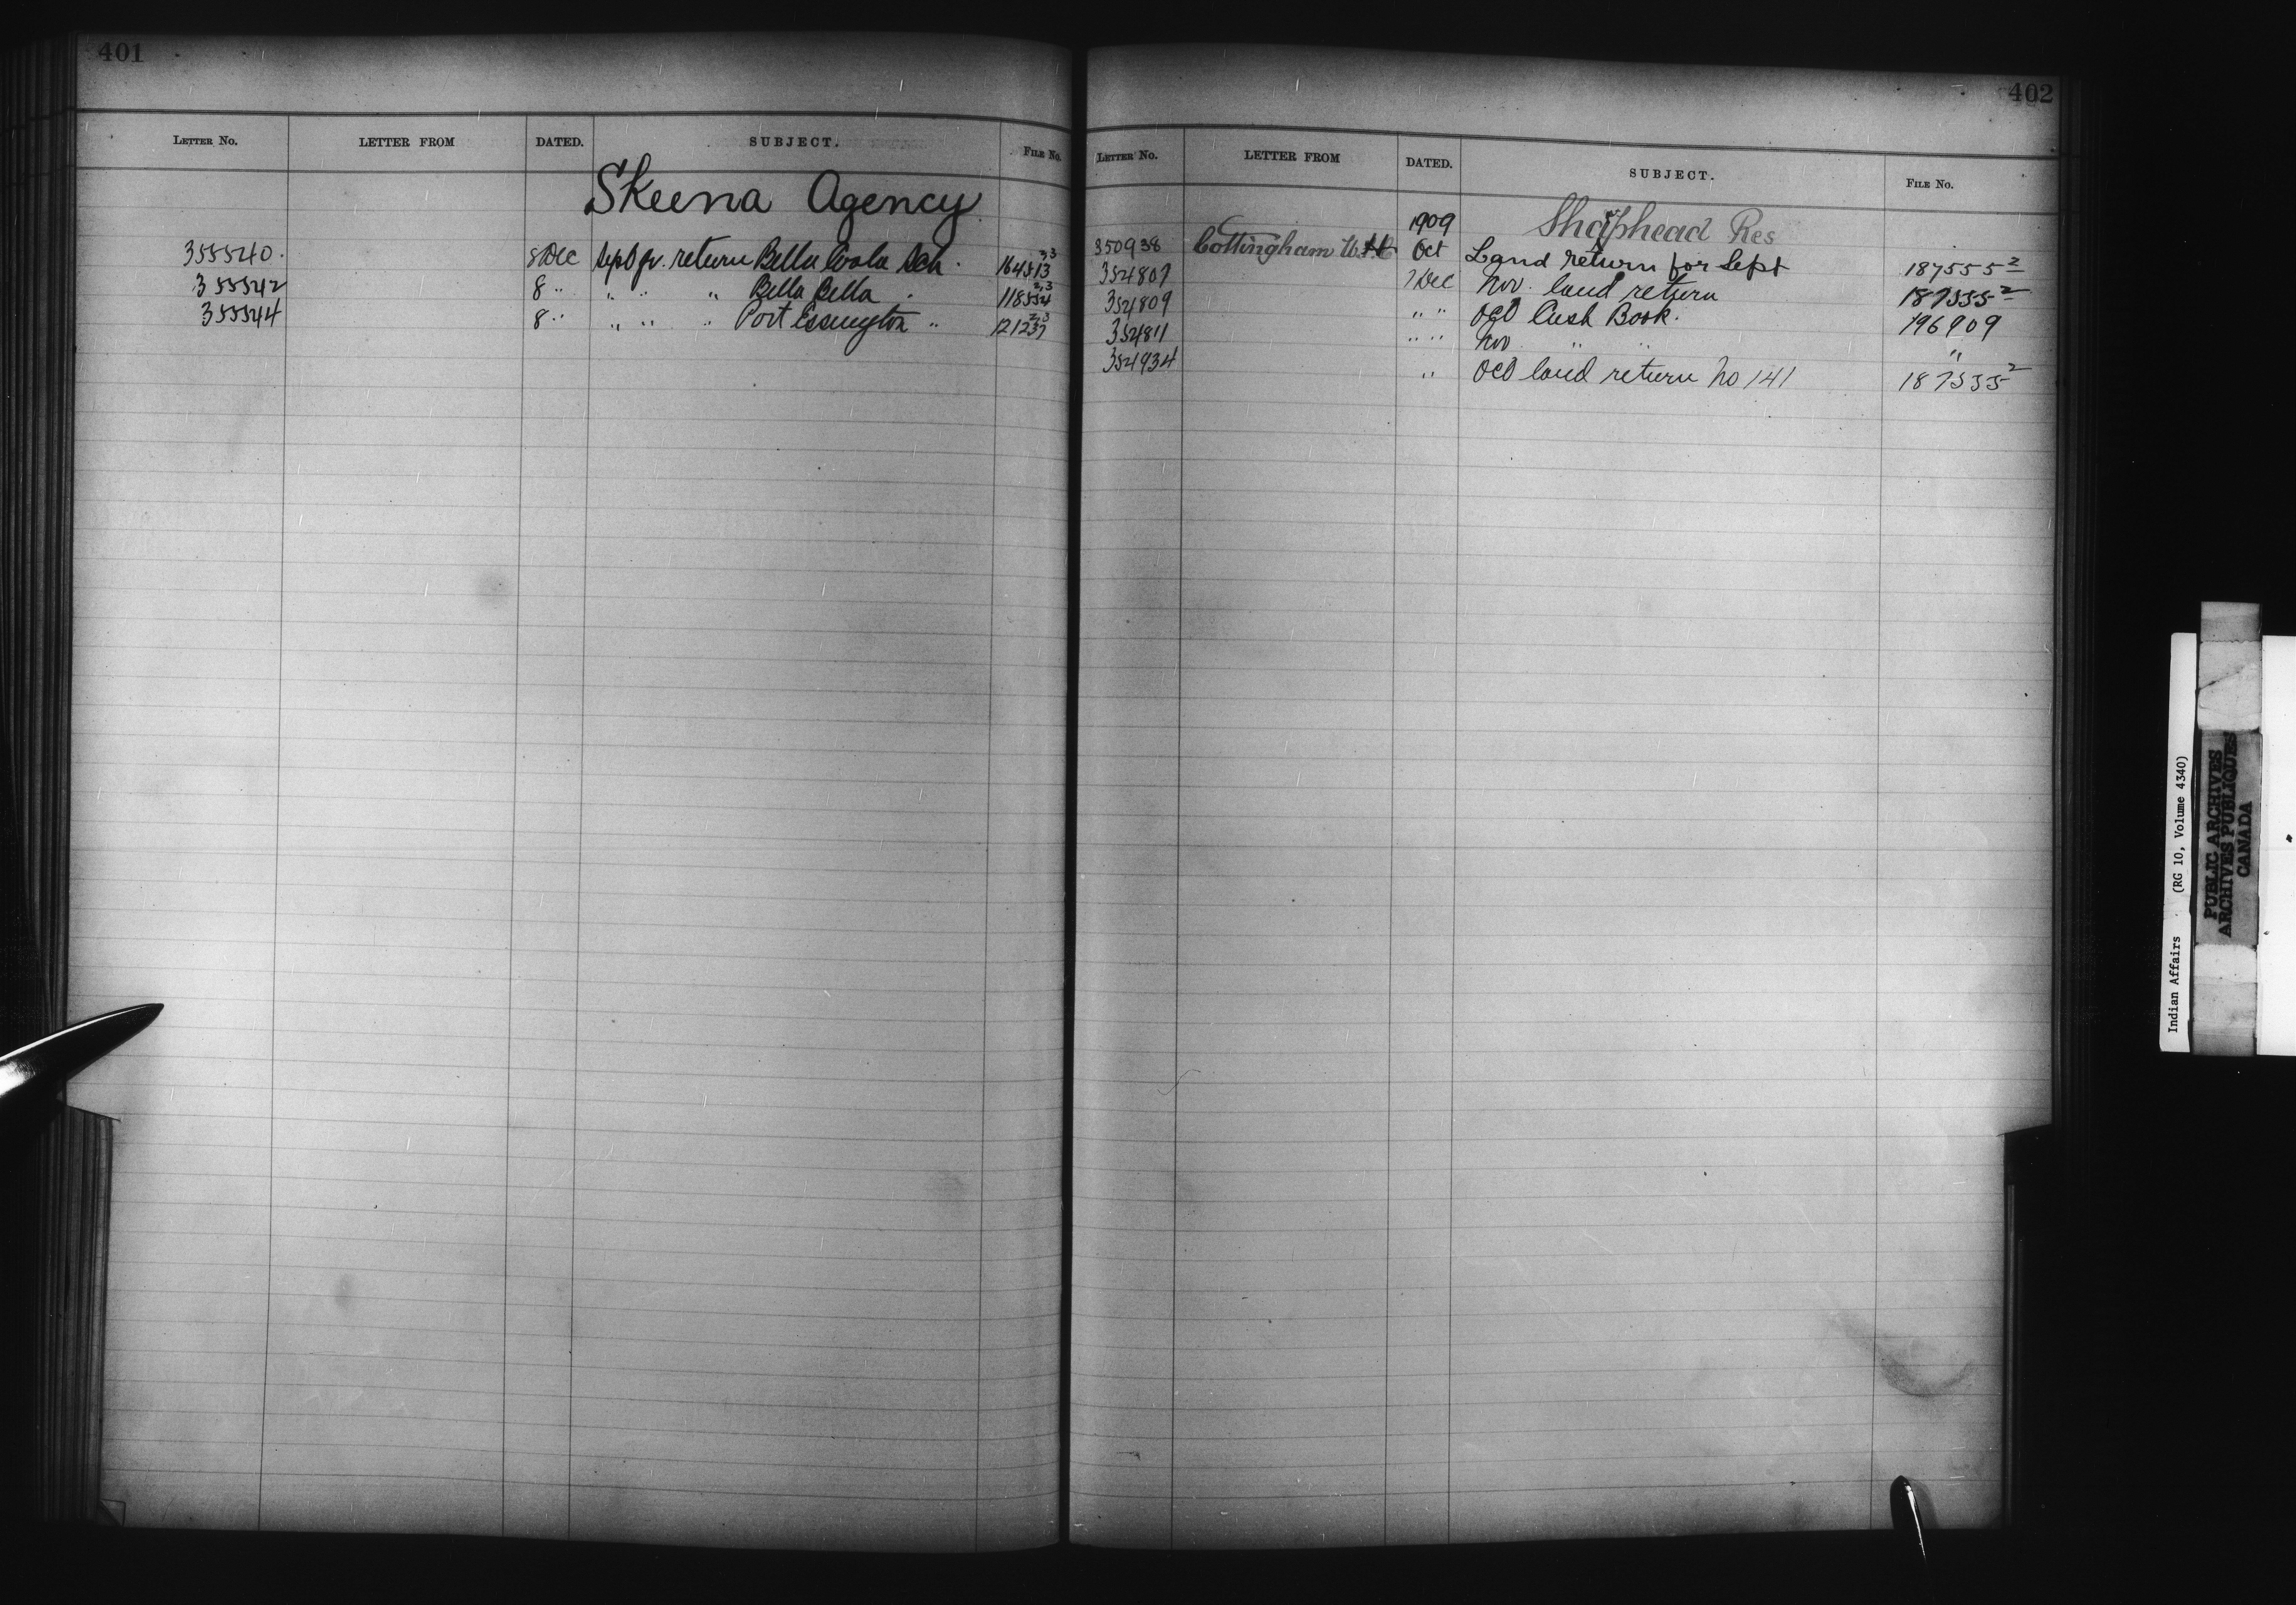 401
LETTER NO. LETTER FROM DATED. SUBJECT. FILE NO.
Skeena Agency
355540. 8 Dec Sept qr. return Bella Coola Sch. 164513 3,3
355542 8 " " " " Bella Bella . 118554 2,3
355544 8 " " " " Port Essington " 121237 2,3
402
LETTER NO. LETTER FROM DATED. SUBJECT. FILE NO.
1909 Shaphead Res
350938 Cottingham W. Oct Land return for Sept 187555 2
354807 7 Dec Nov. land return 187555 2
354809 " " Oct Cash Book. 196909
354811 " " Nov " " "
354934 " Oct land return No 141 187555 2
Indian Affairs (RG 10, Volume 4340)
PUBLIC ARCHIVES
ARCHIVES PUBLIQUES
CANADA